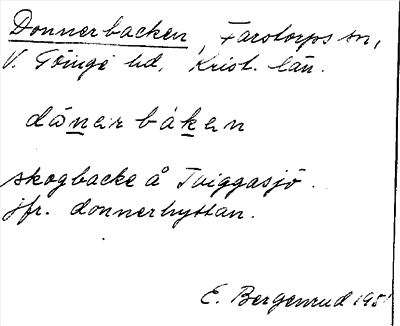 Donnerbacken, Farstorps sn,
V. Göinge hd, Krist. län.
dånær båkæn
skogbacke å Tviggasjö.
jfr. donnerhyttan.
E. Bergenrud